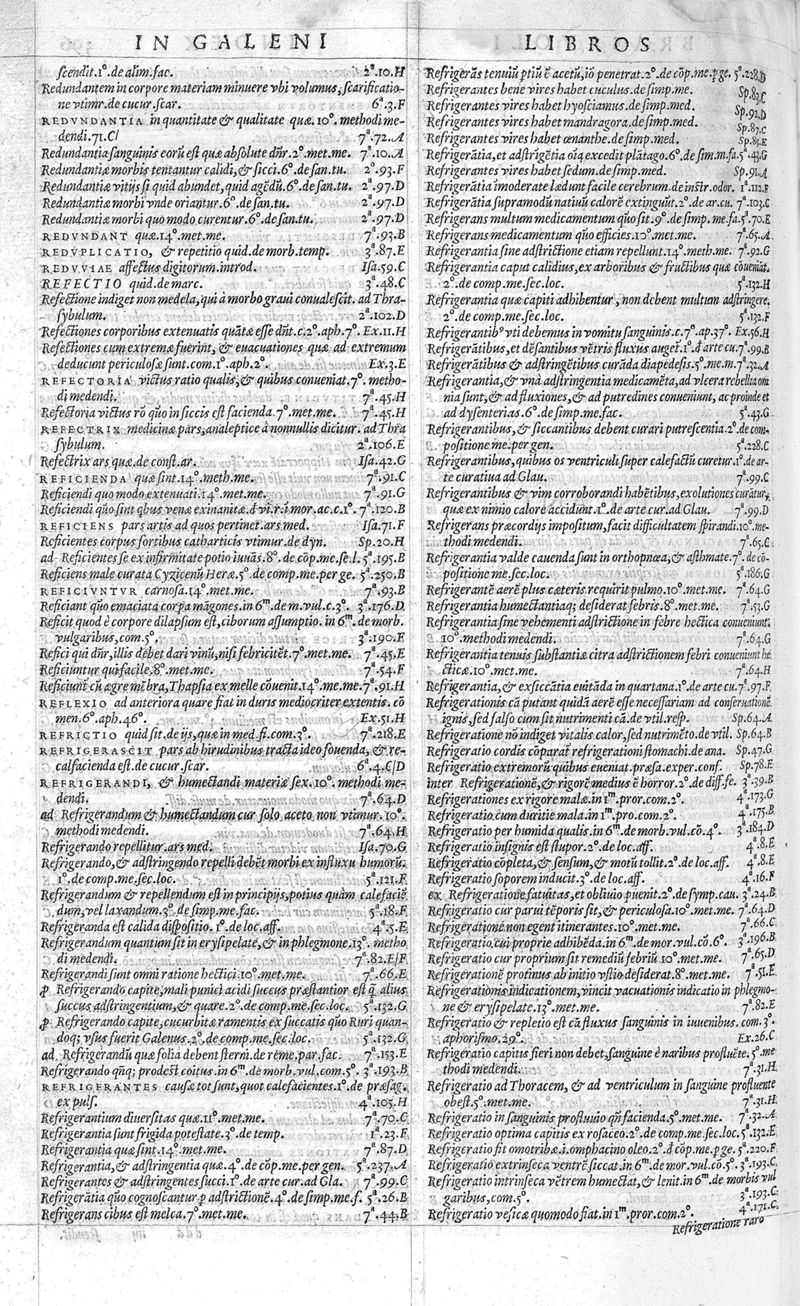 IN GALENI
scendit.1º.de alim.fac. 2ª.10.H
Redundantem in corpore materiam minuere vbi volumus, scarificatio-
ne vtimr.de cucur.scar. 6ª.3.F
REDVNDANTIA in quantitate & qualitate quæ.10º.methodi me-
dendi.71.C/ 7ª.72.A
Redundantia sanguinis eorũ est quæ absolute dñr.2º.met.me. 7ª.10.A
Redundantiæ morbis tentantur calidi, & sicci.6º.de san.tu. 2ª.93.F
Redundantiæ vitijs si quid abundet, quid agẽdũ.6º.de san.tu. 2ª.97.D
Redundantiæ morbi vnde oriantur.6º.de san.tu. 2ª.97.D
Redundantiæ morbi quo modo curentur.6º.de san.tu. 2ª.97.D
REDVNDANT quæ.14º.met.me. 7ª.93.B
REDVPLICATIO, & repetitio quid.de morb.temp. 3ª.87.E
REDVVIAE affectus digitorum.introd. Isa.59.C
REFECTIO quid.de marc. 3ª.48.C
Refectione indiget non medela, qui à morbo graui conualescit. ad Thra-
sybulum. 2ª.102.D
Refectiones corporibus extenuatis quãtæ esse dñt.c.2º.aph.7º. Ex.11.H
Refectiones cum extremæ fuerint, & euacuationes quæ ad extremum
deducunt periculosæ sunt.com.1º.aph.2º. Ex.3.E
REFECTORIA victus ratio qualis, & quibus conueniat.7º. metho-
di medendi. 7ª.45.H
Refectoria victus rõ quo in siccis est facienda.7º.met.me. 7ª.45.H
REFECTRIX medicinæ pars, analeptice à nonnullis dicitur. ad Thra
sybulum. 2ª.106.E
Refectrix ars quæ.de const.ar. Isa.42.G
REFICIENDA quæ sint.14º.meth.me. 7ª.91.C
Reficiendi quo modo extenuati.14º.met.me. 7ª.91.G
Reficiendi quo sint qbus venæ exinanitæ.d vi.r.i mor.ac.c.1º. 7ª.120.B
REFICIENS pars artis ad quos pertinet.ars med. Isa.71.F
Reficientes corpus fortibus catharticis vtimur.de dyn. Sp.20.H
ad Reficientes se ex infirmitate potio iuuãs.8º.de cõp.me.se.l. 5ª.195.B
Reficiens male curata Cyzicenũ Heræ.5º.de comp.me.per ge. 5ª.250.B
REFICIVNTVR carnosa.14º.met.me. 7ª.93.B
Reficiant quo emaciata corpa mãgones.in 6ᵐ.de m.vul.c.3º. 3ª.176.D
Reficit quod è corpore dilapsum est, ciborum assumptio. in 6ᵐ. de morb.
vulgaribus, com.5º. 3ª.190.F
Refici qui dñr, illis debet dari vinũ, nisi febricitẽt.7º.met.me. 7ª.45.E
Reficiuntur qui facile.8º.met.me. 7ª.54.F
Reficiunt cũ ægre mẽbra, Thapsia ex melle cõuenit.14º.me.me. 7ª.91.H
REFLEXIO ad anteriora quare fiat in duris mediocriter extentis. cõ
men.6º.aph.46º. Ex.51.H
REFRICTIO quid sit.de ijs, quæ in med.fi.com.3º. 7ª.218.E
REFRIGERASCIT pars ab hirudinibus tracta ideo fouenda, & re-
calfacienda est.de cucur.scar. 6ª.4.C/D
REFRIGERANDI, & humectandi materiæ sex. 10º. methodi me-
dendi. 7ª.64.D
ad Refrigerandum & humectandum cur solo aceto non vtimur.10º.
methodi medendi. 7ª.64.H
Refrigerando repellitur.ars med. Isa.70.G
Refrigerando, & adstringendo repelli debẽt morbi ex influxu humorũ.
1º.de comp.me.sec.loc. 5ª.121.F
Refrigerandum & repellendum est in principijs, potius quàm calefaciẽ
dum, vel laxandum.3º.de simp.me.fac. 5ª.18.F
Refrigeranda est calida dispositio. 1º.de loc.aff. 4ª.5.E
Refrigerandum quantum sit in erysipelate, & in phlegmone.13º. metho
di medendi. 7ª.82.E/F
Refrigerandi sunt omni ratione hectici.10º.met.me. 7ª.66.E
ꝓ Refrigerando capite, mali punici acidi succus præstantior est q̃ alius
succus adstringentium, & quare.2º.de comp.me.sec.loc. 5ª.132.G
ꝓ Refrigerando capite, cucurbitæ ramentis ex succatis quo Ruri quan-
doq; vsus fuerit Galenus.2º.de comp.me.sec.loc. 5ª.132.G
ad Refrigerandũ quæ folia debent sterni.de rẽme.par.fac. 7ª.153.E
Refrigerando qñq; prodest coitus.in 6ᵐ.de morb.vul.com.5º. 3ª.193.B
REFRIGERANTES causæ tot sunt, quot calefacientes.1º.de præsag.
ex puls. 4ª.105.H
Refrigerantium diuersitas quæ.11º.met.me. 7ª.70.C
Refrigerantia sunt frigida potestate.3º.de temp. 1ª.23.F
Refrigerantia quæ sint.14º.met.me. 7ª.87.D
Refrigerantia, & adstringentia quæ.4º.de cõp.me.per gen. 5ª.237.A
Refrigerantes & adstringentes succi.1º.de arte cur.ad Gla. 7ª.99.C
Refrigerãtia quo cognoscantur ꝑ adstrictionẽ.4º.de simp.me.f. 5ª.26.B
Refrigerans cibus est melca.7º.met.me. 7ª.44.B
LIBROS
Refrigerãs tenuiũ ptiũ ẽ acetũ, iõ penetrat.2º.de cõp.me.ꝑge. 5ª.228.D
Refrigerantes bene vires habet cuculus.de simp.me. Sp.83.C
Refrigerantes vires habet hyosciamus.de simp.med. Sp.92.D
Refrigerantes vires habet mandragora.de simp.med. Sp.87.C
Refrigerantes vires habet œnanthe.de simp.med. Sp.85.E
Refrigerãtia, et adstrigẽtia oĩa excedit plãtago.6º.de sim.m.fa. 5ª.43.G
Refrigerantes vires habet sedum.de simp.med. Sp.91.A
Refrigerãtia ĩmoderate lædunt facile cerebrum.de instr.odor. 1ª.111.F
Refrigerãtia supramodũ natiuũ calorẽ extinguũt.2º.de ar.cu. 7ª.103.C
Refrigerans multum medicamentum quo sit.9º.de simp.me.fa. 5ª.70.E
Refrigerans medicamentum quo efficies.10º.met.me. 7ª.65.A
Refrigerantia sine adstrictione etiam repellunt.14º.meth.me. 7ª.92.G
Refrigerantia caput calidius, ex arboribus & fructibus quæ cõueniãt.
2º.de comp.me.sec.loc. 5ª.132.H
Refrigerantia quæ capiti adhibentur, non debent multum adstringere.
2º.de comp.me.sec.loc. 5ª.132.F
Refrigerantib⁹ vti debemus in vomitu sanguinis.c.7º.ap.37º. Ex.56.H
Refrigerãtibus, et dẽsantibus vẽtris fluxus augeť.1º.d arte cu. 7ª.99.B
Refrigerãtibus & adstringẽtibus curãda diapedesis.5º.me.m. 7ª.32.A
Refrigerantia, & vnà adstringentia medicamẽta, ad vlcera rebellia om
nia sunt, & ad fluxiones, & ad putredines conueniunt, ac proinde et
ad dysenterias.6º.de simp.me.fac. 5ª.43.G
Refrigerantibus, & siccantibus debent curari putrescentia.2º.de com-
positione me.per gen. 5ª.228.C
Refrigerantibus, quibus os ventriculi super calefactũ curetur.1º.de ar-
te curatiua ad Glau. 7ª.99.C
Refrigerantibus & vim corroborandi habẽtibus, exolutiones curãtur,
quæ ex nimio calore accidunt.1º.de arte cur.ad Glau. 7ª.99.D
Refrigerans præcordijs impositum, facit difficultatem spirandi.10º.me-
thodi medendi. 7ª.65.C
Refrigerantia valde cauenda sunt in orthopnœa, & asthmate.7º. de cõ-
positione me.sec.loc. 5ª.186.G
Refrigerantẽ aerẽ plus cæteris requirit pulmo.10º.met.me. 7ª.64.G
Refrigerantia humectantiaq; desiderat febris.8º.met.me. 7ª.53.G
Refrigerantia sine vehementi adstrictione in febre hectica conueniunt.
10º.methodi medendi. 7ª.64.G
Refrigerantia tenuis substantiæ citra adstrictionem febri conueniunt he
cticæ.10º.met.me. 7ª.64.H
Refrigerantia, & exsiccãtia euitãda in quartana.1º.de arte cu. 7ª.97.F
Refrigerationis cã putant quidã aerẽ esse necessariam ad conseruationẽ
ignis, sed falso cum sit nutrimenti cã.de vtil.resp. Sp.64.A
Refrigeratione nõ indiget vitalis calor, sed nutrimẽto.de vtil. Sp.64.B
Refrigeratio cordis cõparať refrigerationi stomachi.de ana. Sp.47.G
Refrigeratio extremorũ quibus eueniat.præsa.exper.conf. Sp.78.E
inter Refrigerationẽ, & rigorẽ medius ẽ horror.2º.de diff.fe. 3ª.39.B
Refrigerationes ex rigore malæ.in 1ᵐ.pror.com.2º. 4ª.173.G
Refrigeratio cum duritie mala.in 1ᵐ.pro.com.2º. 4ª.175.B
Refrigeratio per humida qualis.in 6ᵐ.de morb.vul.cõ.4º. 3ª.184.D
Refrigeratio insignis est stupor.2º.de loc.aff. 4ª.8.E
Refrigeratio cõpleta, & sensum, & motũ tollit.2º.de loc.aff. 4ª.8.E
Refrigeratio soporem inducit.3º.de loc.aff. 4ª.16.F
ex Refrigeratione fatuitas, et obliuio puenit.2º.de symp.cau. 3ª.24.B
Refrigeratio cur parui tẽporis sit, & periculosa.10º.met.me. 7ª.64.D
Refrigerationẽ non egent itinerantes.10º.met.me. 7ª.66.C
Refrigeratio cui proprie adhibẽda.in 6ᵐ.de mor.vul.cõ.6º. 3ª.196.B
Refrigeratio cur proprium sit remediũ febriũ 10º.met.me. 7ª.65.D
Refrigerationẽ protinus ab initio vstio desiderat.8º.met.me. 7ª.51.E
Refrigerationis indicationem, vincit vacuationis indicatio in phlegmo-
ne & erysipelate.13º.met.me. 7ª.82.E
Refrigeratio & repletio est cã fluxus sanguinis in iuuenibus. com.3º.
aphorismo.29º. Ex.26.C
Refrigeratio capitis fieri non debet, sanguine è naribus profluẽte.5º.me
thodi medendi. 7ª.31.H
Refrigeratio ad Thoracem, & ad ventriculum in sanguine profluente
obest.5º.met.me. 7ª.31.H
Refrigeratio in sanguinis profluuio qñ facienda.5º.met.me. 7ª.32.A
Refrigeratio optima capitis ex rosaceo.2º.de comp.me.sec.loc. 5ª.132.E
Refrigeratio fit omotribæ.i.omphacino oleo.2º.d cõp.me.ꝑge. 5ª.220.F
Refrigeratio extrinseca ventrẽ siccat.in 6ᵐ.de mor.vul.cõ.5º. 3ª.193.C
Refrigeratio intrinseca vẽtrem humectat, & lenit.in 6ᵐ.de morbis vul
garibus, com.5º. 3ª.193.C
Refrigeratio vesicæ quomodo fiat.in 1ᵐ.pror.com.2º. 4ª.171.C
Refrigeratione raro